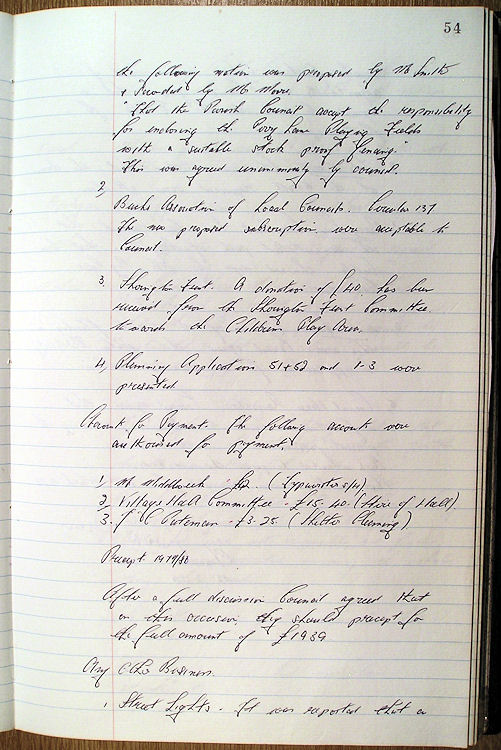 54
the following motion was proposed by Mr Smith
& Seconded by Mr Moore.
"That the Parish Council accept the responsibility
for enclosing the Perry Lane Playing Fields
with a "suitable stock proof fencing."
This was agreed unanimously by council.
2,
Bucks Association of Local Councils. Circular 137
The new proposed subscription were acceptable to
Council.
3, Sherington Fest. A donation of £40 has been
received from the Sherington Fest Committee
towards the Childrens Play Area.
4, Planning Applications 51+52 and 1-3 were
presented
Accounts for Payment. The following accounts were
authorised for payment.
1, Mr Middleweek - £12. (Typewriter s/h)
2, Village Hall Committee - £15.40. (Hire of Hall)
3. J C Pateman - £3.25 (Shelter Cleaning)
Precept 1979/80
After a full discussion Council agreed that
on this occasion they should precept for
the full amount of £1989
Any Other Business.
1. Street Lights. It was reported that a